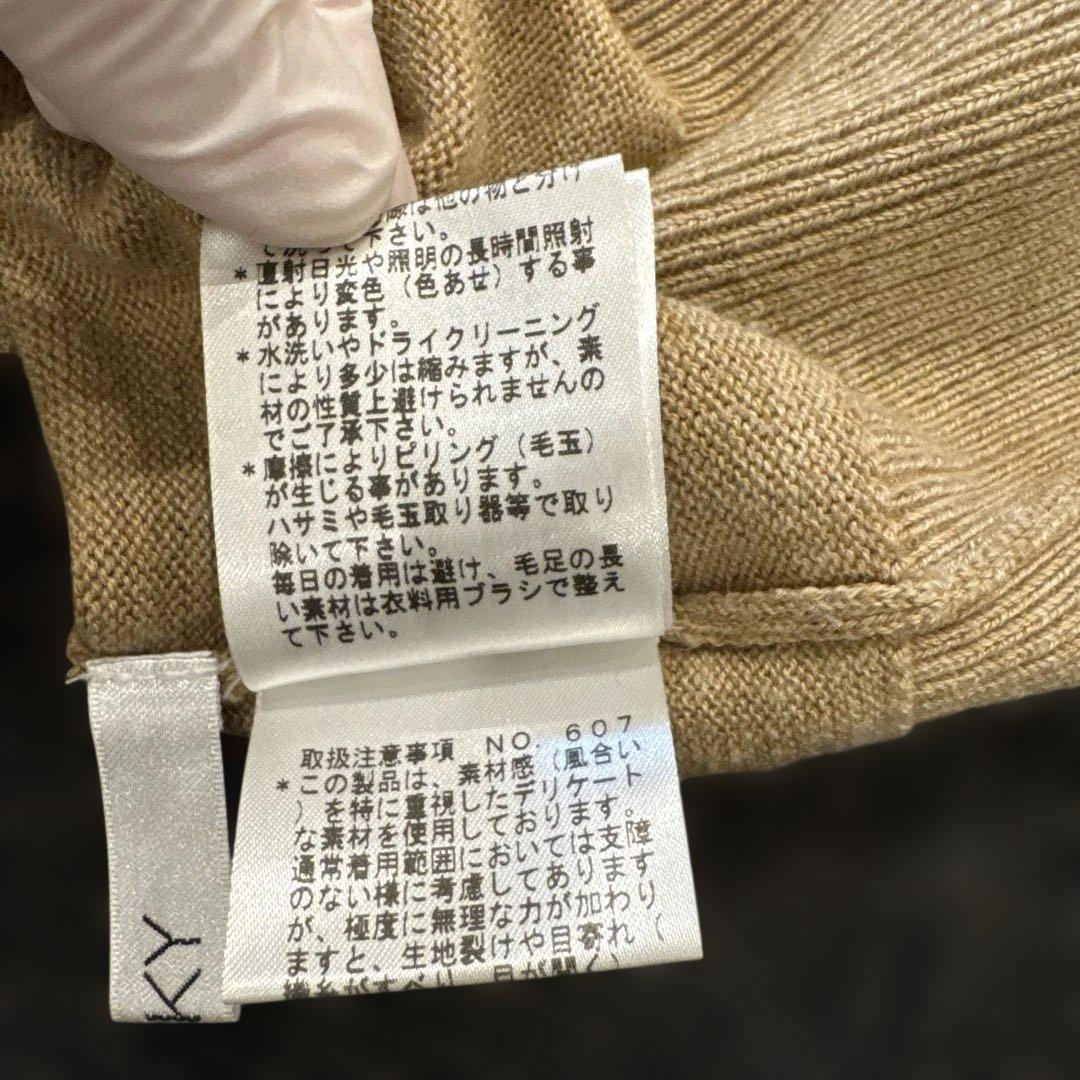 は他の物と分け
て洗って下さい。
*直射日光や照明の長時間照射
により変色（色あせ）する事
があります。
*水洗いやドライクリーニング
により多少は縮みますが、素
材の性質上避けられませんの
でご了承下さい。
*摩擦によりピリング（毛玉）
が生じる事があります。
ハサミや毛玉取り器等で取り
除いて下さい。
毎日の着用は避け、毛足の長
い素材は衣料用ブラシで整え
て下さい。
取扱注意事項 NO. 607
*この製品は、素材感（風合い
）を特に重視したデリケート
な素材を使用しております。
通常着用範囲においては支障
のない様に考慮してあります
が、極度に無理な力が加わり
ますと、生地裂けや目寄れ（
縫糸がすべり、目が開く）
KY